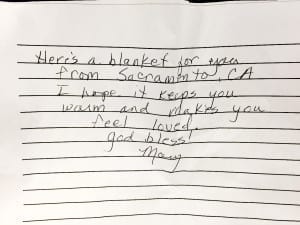 Here's a blanket for you
from Sacramento, CA
I hope it keeps you
warm and makes you
feel loved.
god bless!
Mary